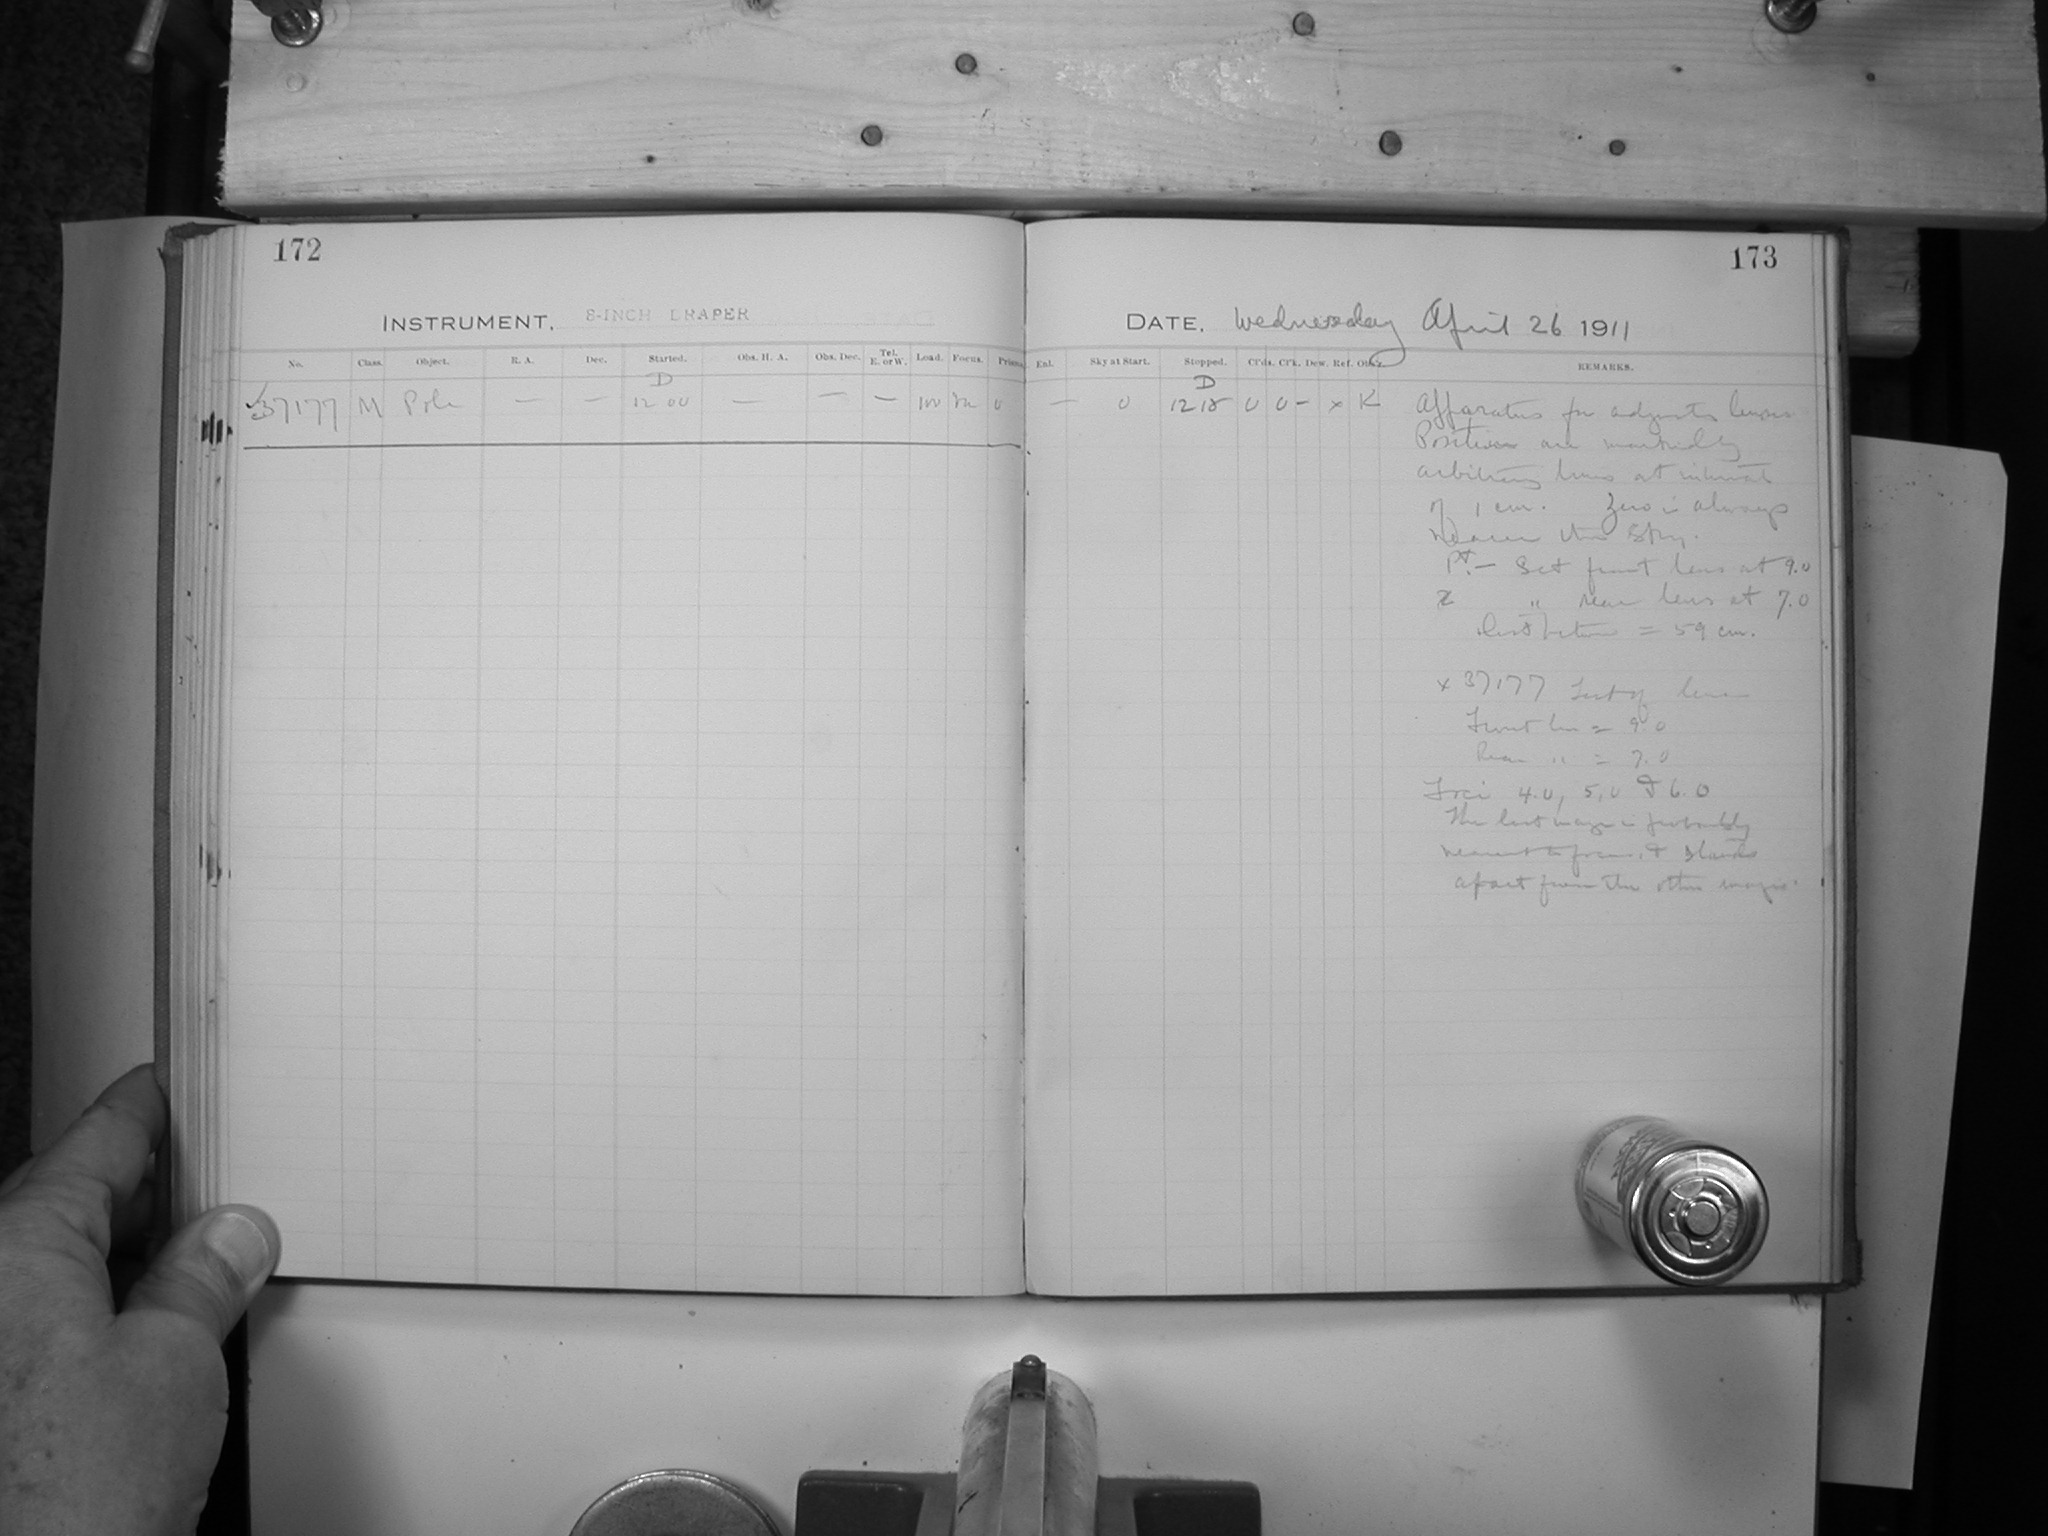 172
INSTRUMENT. 8-INCH DRAPER
No. Class. Object. R. A. Dec. Started. Obs. H. A. Obs. Dec. Tel. E. or W. Load. Focus. Prism.
D
37177 M Pole — — 12 00 — — — 0
173
DATE. Wednesday April 26 1911
Enl. Sky at Start. Stopped. Cl'ds. Cl'k. Dew. Ref. Obs'r. REMARKS.
D
— 0 12 18 0 0 – x K Apparatus for lenses
Positions are
arbitrary lines at interval
of 1 cm. Zero is always
nearer the sky.
Pt.— Set front lens at 9.0
" rear lens at 7.0
Dist between = 59 cm.
x 37177 Test of lens
Front len = 9.0
Rear " = 7.0
Foci 4.0, 5.0 & 6.0
The last image is probably
nearest to focus, & stands
apart from the other images.